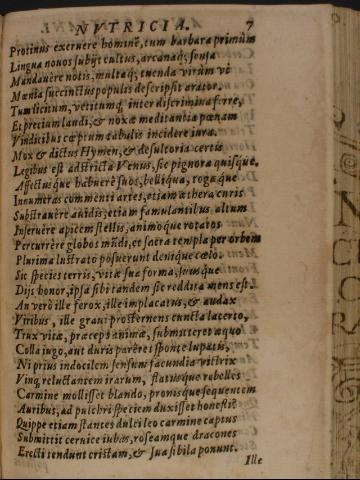 NVTRICIA. 7
Protinus exeruere hominē, tum barbara primùm
Lingua nouos subijt cultus, arcanaq; sensa
Mandauêre notis, multaq; tuenda virùm vi
Mœnia succinctus populis descripsit arator.
Tum licitum, vetitumq; inter discrimina ferre,
Et precium laudi, & noxæ meditantia pœnam
Vindicibus cœptum tabulis incidere iura.
Mox & dictus Hymen, & desultoria certis
Legibus est adstricta Venus, sic pignora quisque,
Affectusque habuêre suos, belliqua, togæque
Innumeras commenti artes, etiam æthera curis
Substrauêre auidis, etiam famulantibus altum
Inseruêre apicem stellis, animoque rotatos
Percurrêre globos mūdi, et sacra templa per orbem
Plurima lustrato posuerunt denique cœlo.
Sic species terris, vitæ sua forma, suusque
Dijs honor, ipsa sibi tandem sic reddita mens est.
An verò ille ferox, ille implacatus, & audax
Viribus, ille graui prosternens cuncta lacerto,
Trux vitæ, præceps animæ, submitteret æquo
Colla iugo, aut duris parêret sponte lupatis,
Ni prius indocilem sensum facundia victrix
Vinq; reluctantem irarum, flatusque rebelles
Carmine mollisset blando, pronisque sequentem
Auribus, ad pulchri speciem duxisset honesti?
Quippe etiam stantes dulci leo carmine captus
Submittit ceruice iubas, roseamque dracones
Erecti tendunt cristam, & sua sibila ponunt.
Ille